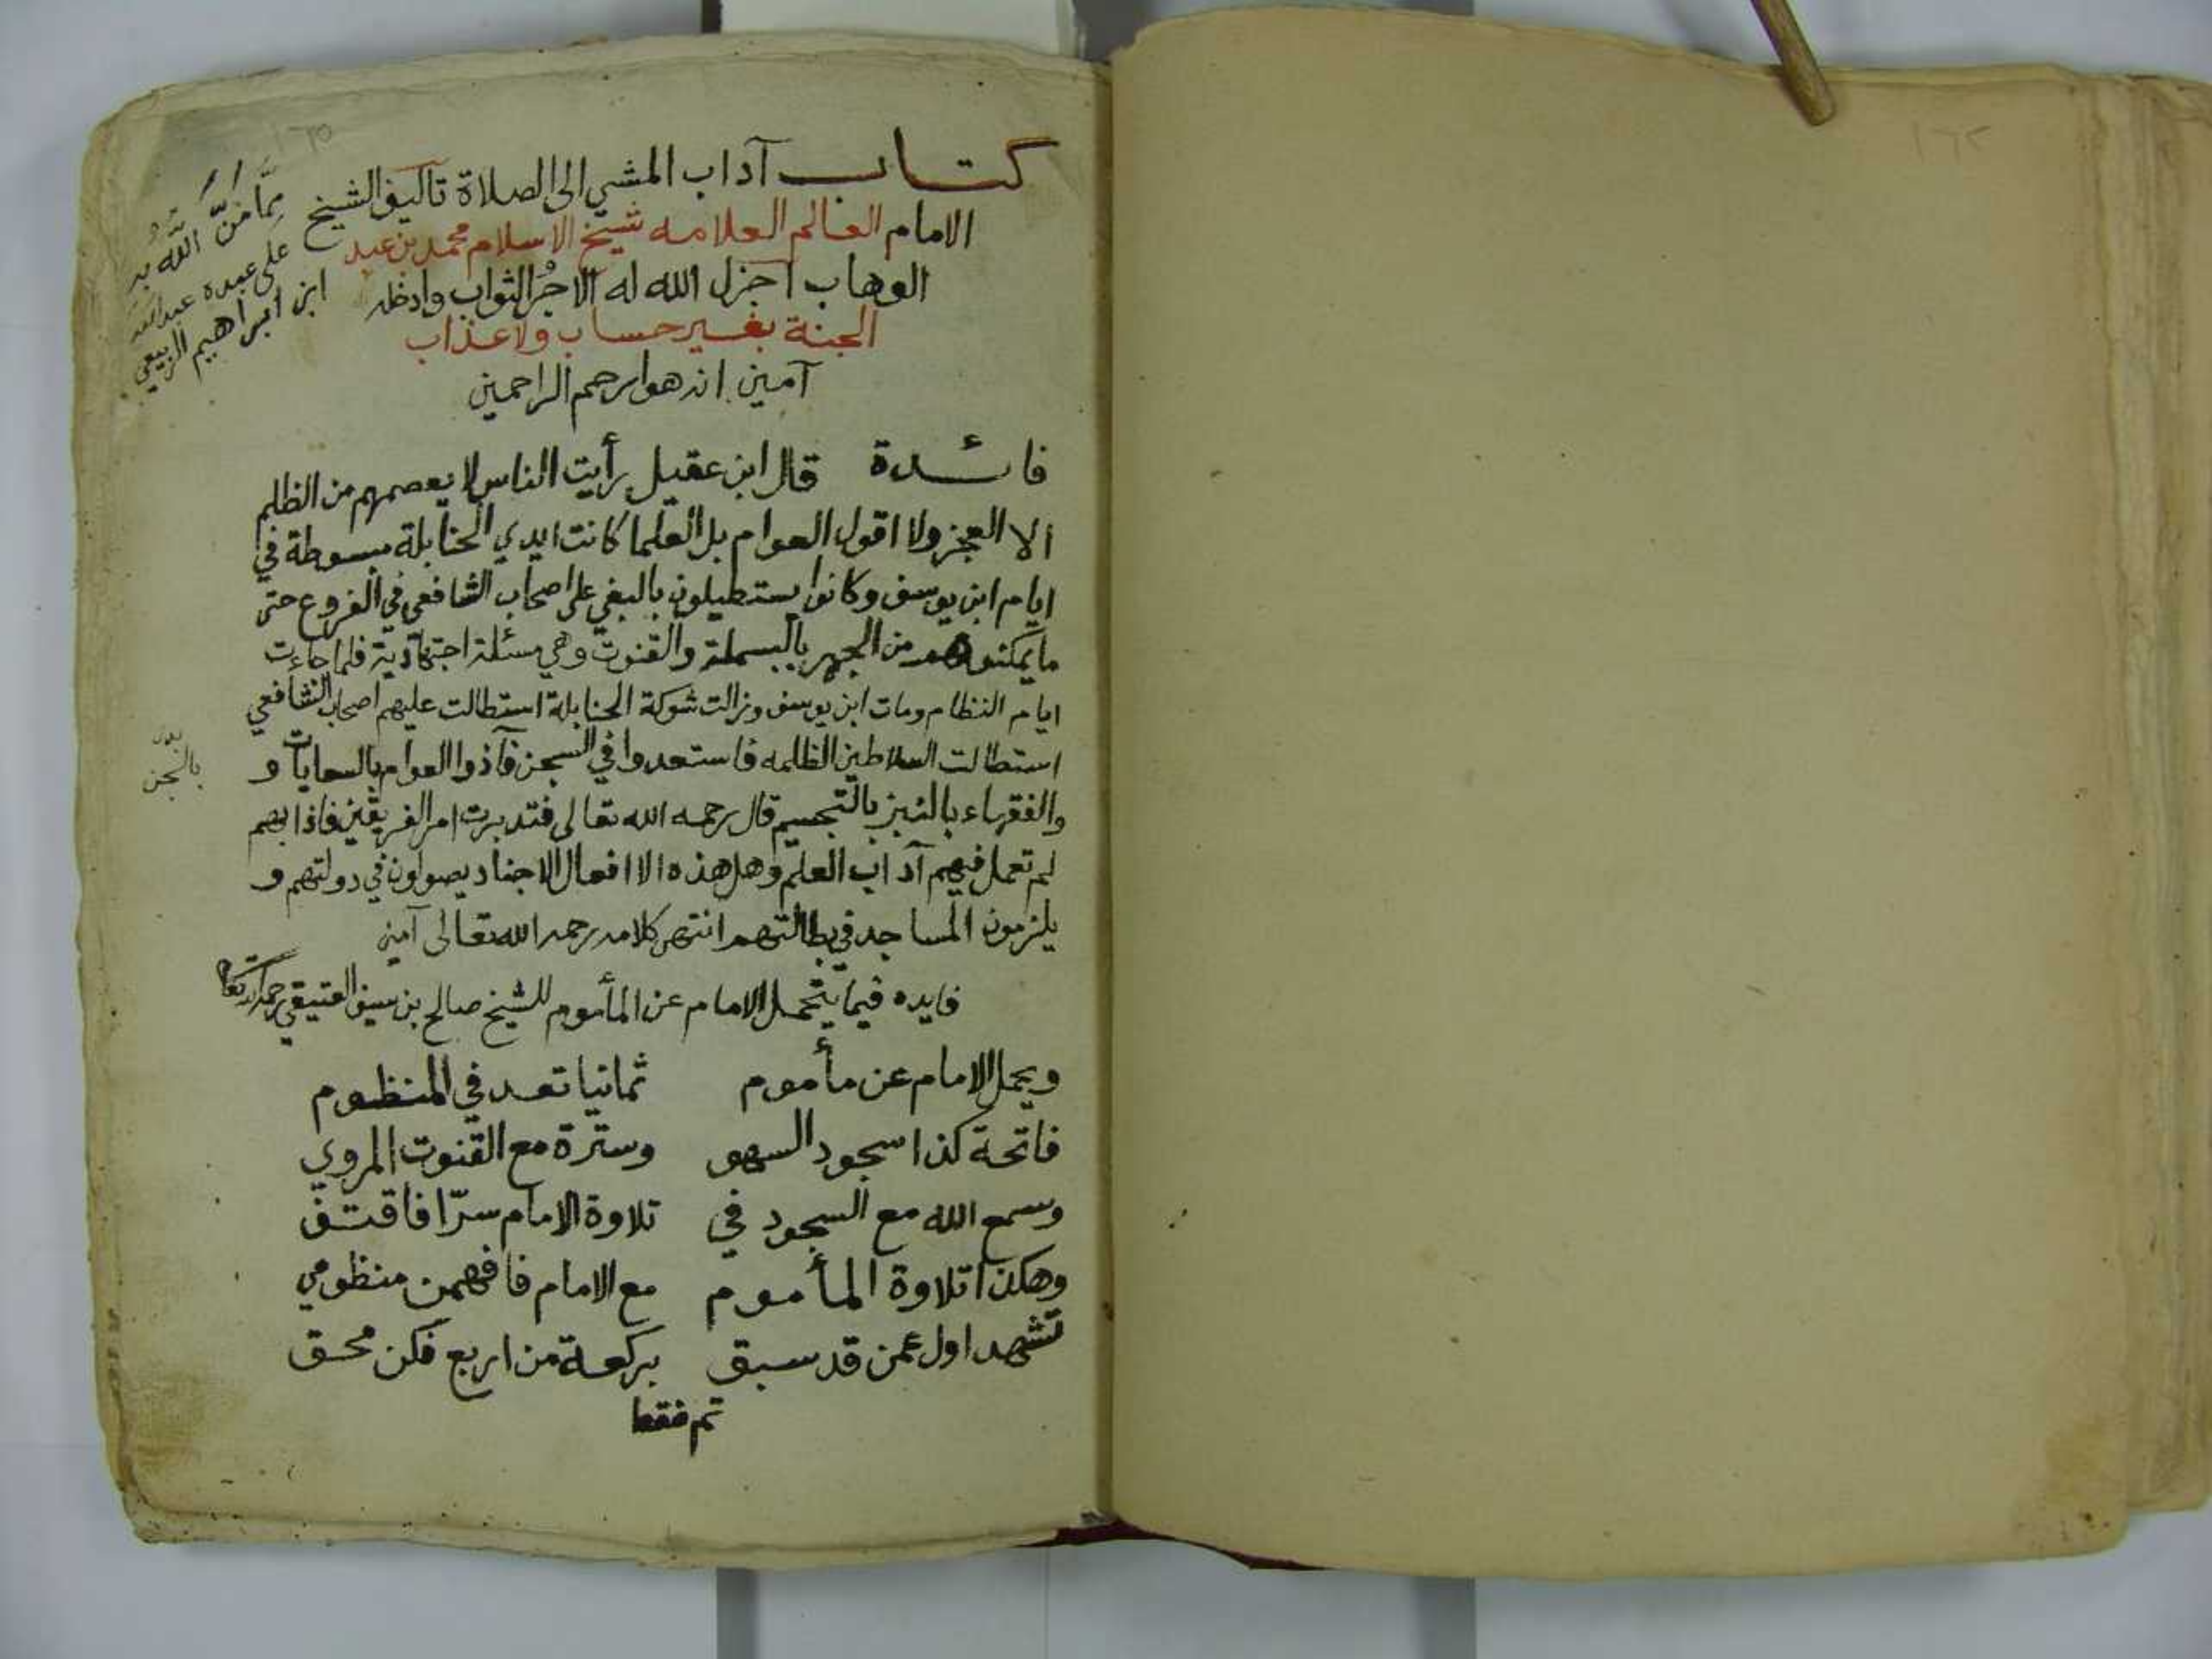 ١٦٥
كتاب آداب المشي الى الصلاة تأليف الشيخ
الامام العالم العلامه شيخ الاسلام محمد بن عبد
الوهاب اجزل الله له الاجر والثواب وادخله
الجنة بغير حساب ولا عذاب
آمين انه هو ارحم الراحمين
ممّا منّ الله به
على عبده عبدالله
ابن ابراهيم الربيعي
فائدة قال ابن عقيل رأيت الناس لا يعصمهم من الظلم
الا العجز ولا اقول العوام بل العلما كانت ايدي الحنابلة مبسوطة في
ايام ابن يوسف وكانوا يستطيلون بالبغي على اصحاب الشافعي في الفروع حتى
ما يمكنوهم من الجهر بالبسملة والقنوت وهي مسئلة اجتهادية فلما جاءت
ايام النظام ومات ابن يوسف وزالت شوكة الحنابلة استطالت عليهم اصحاب الشافعي
استطالت السلاطين الظلمه فاستعدوا في السجن فآذوا العوام بالسعايات و
بالسجن
والفقهاء بالنبز بالتجسيم قال رحمه الله تعالى فتدبرت امر الفريقين فاذا بهم
لم تعمل فيهم آداب العلم وهل هذه الا افعال الاجناد يصولون في دولتهم و
يلزمون المساجد في بطالتهم انتهى كلامه رحمه الله تعالى آمين
فايده فيما يتحمل الامام عن المأموم للشيخ صالح بن سيف العتيقي رحمه الله تعالى
ويحمل الامام عن مأموم ثمانيا تعد في المنظوم
فاتحة كذا سجود السهو وسترة مع القنوت المروي
وسمع الله مع السجود في تلاوة الامام سرّا فاقتف
وهكذا تلاوة المأموم مع الامام فافهمن منظومي
تشهد اول عمن قد سبق بركعة من اربع فكن محق
تم فقط